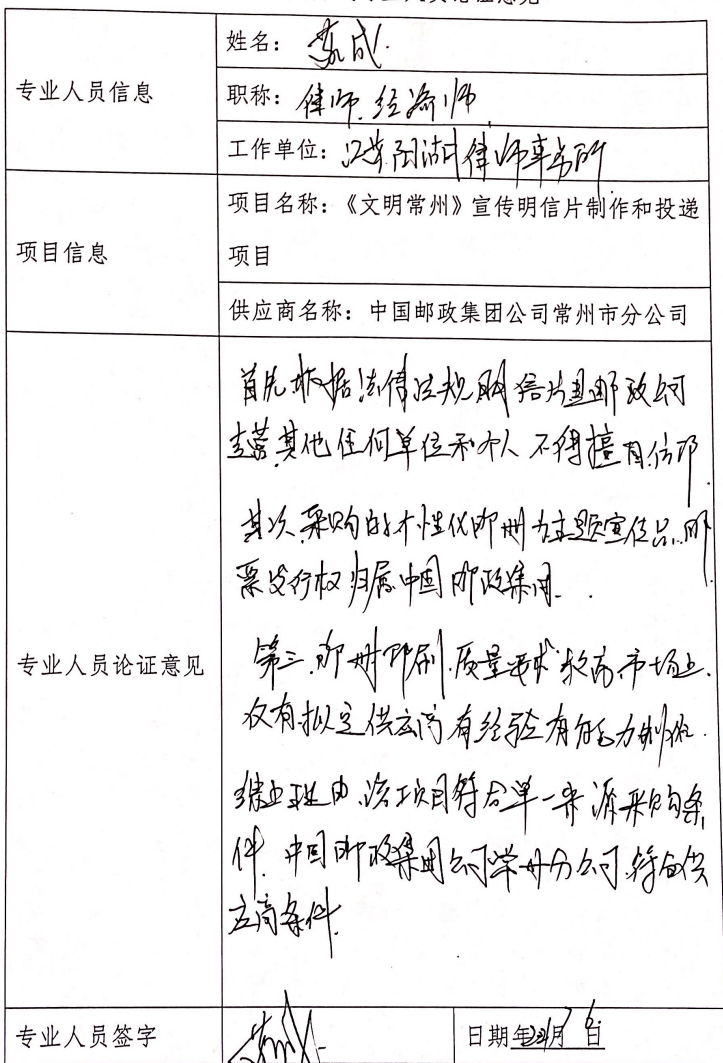 专业人员论证意见
专业人员信息
姓名：苏成
职称：律师、经济师
工作单位：江苏阳湖律师事务所
项目信息
项目名称：《文明常州》宣传明信片制作和投递
项目
供应商名称：中国邮政集团公司常州市分公司
专业人员论证意见
首先根据法律法规明信片是邮政公司
主营，其他任何单位和个人不得擅自仿印
其次，采购的个性化邮册为主题宣传品，邮
票发行权归属中国邮政集团.
第三，邮册印刷，质量要求较高，市场上，
仅有拟定供应商有经验有能力制作.
综上理由，该项目符合单一来源采购条
件，中国邮政集团公司常州分公司，符合供
应商条件.
专业人员签字
日期 年 月 日